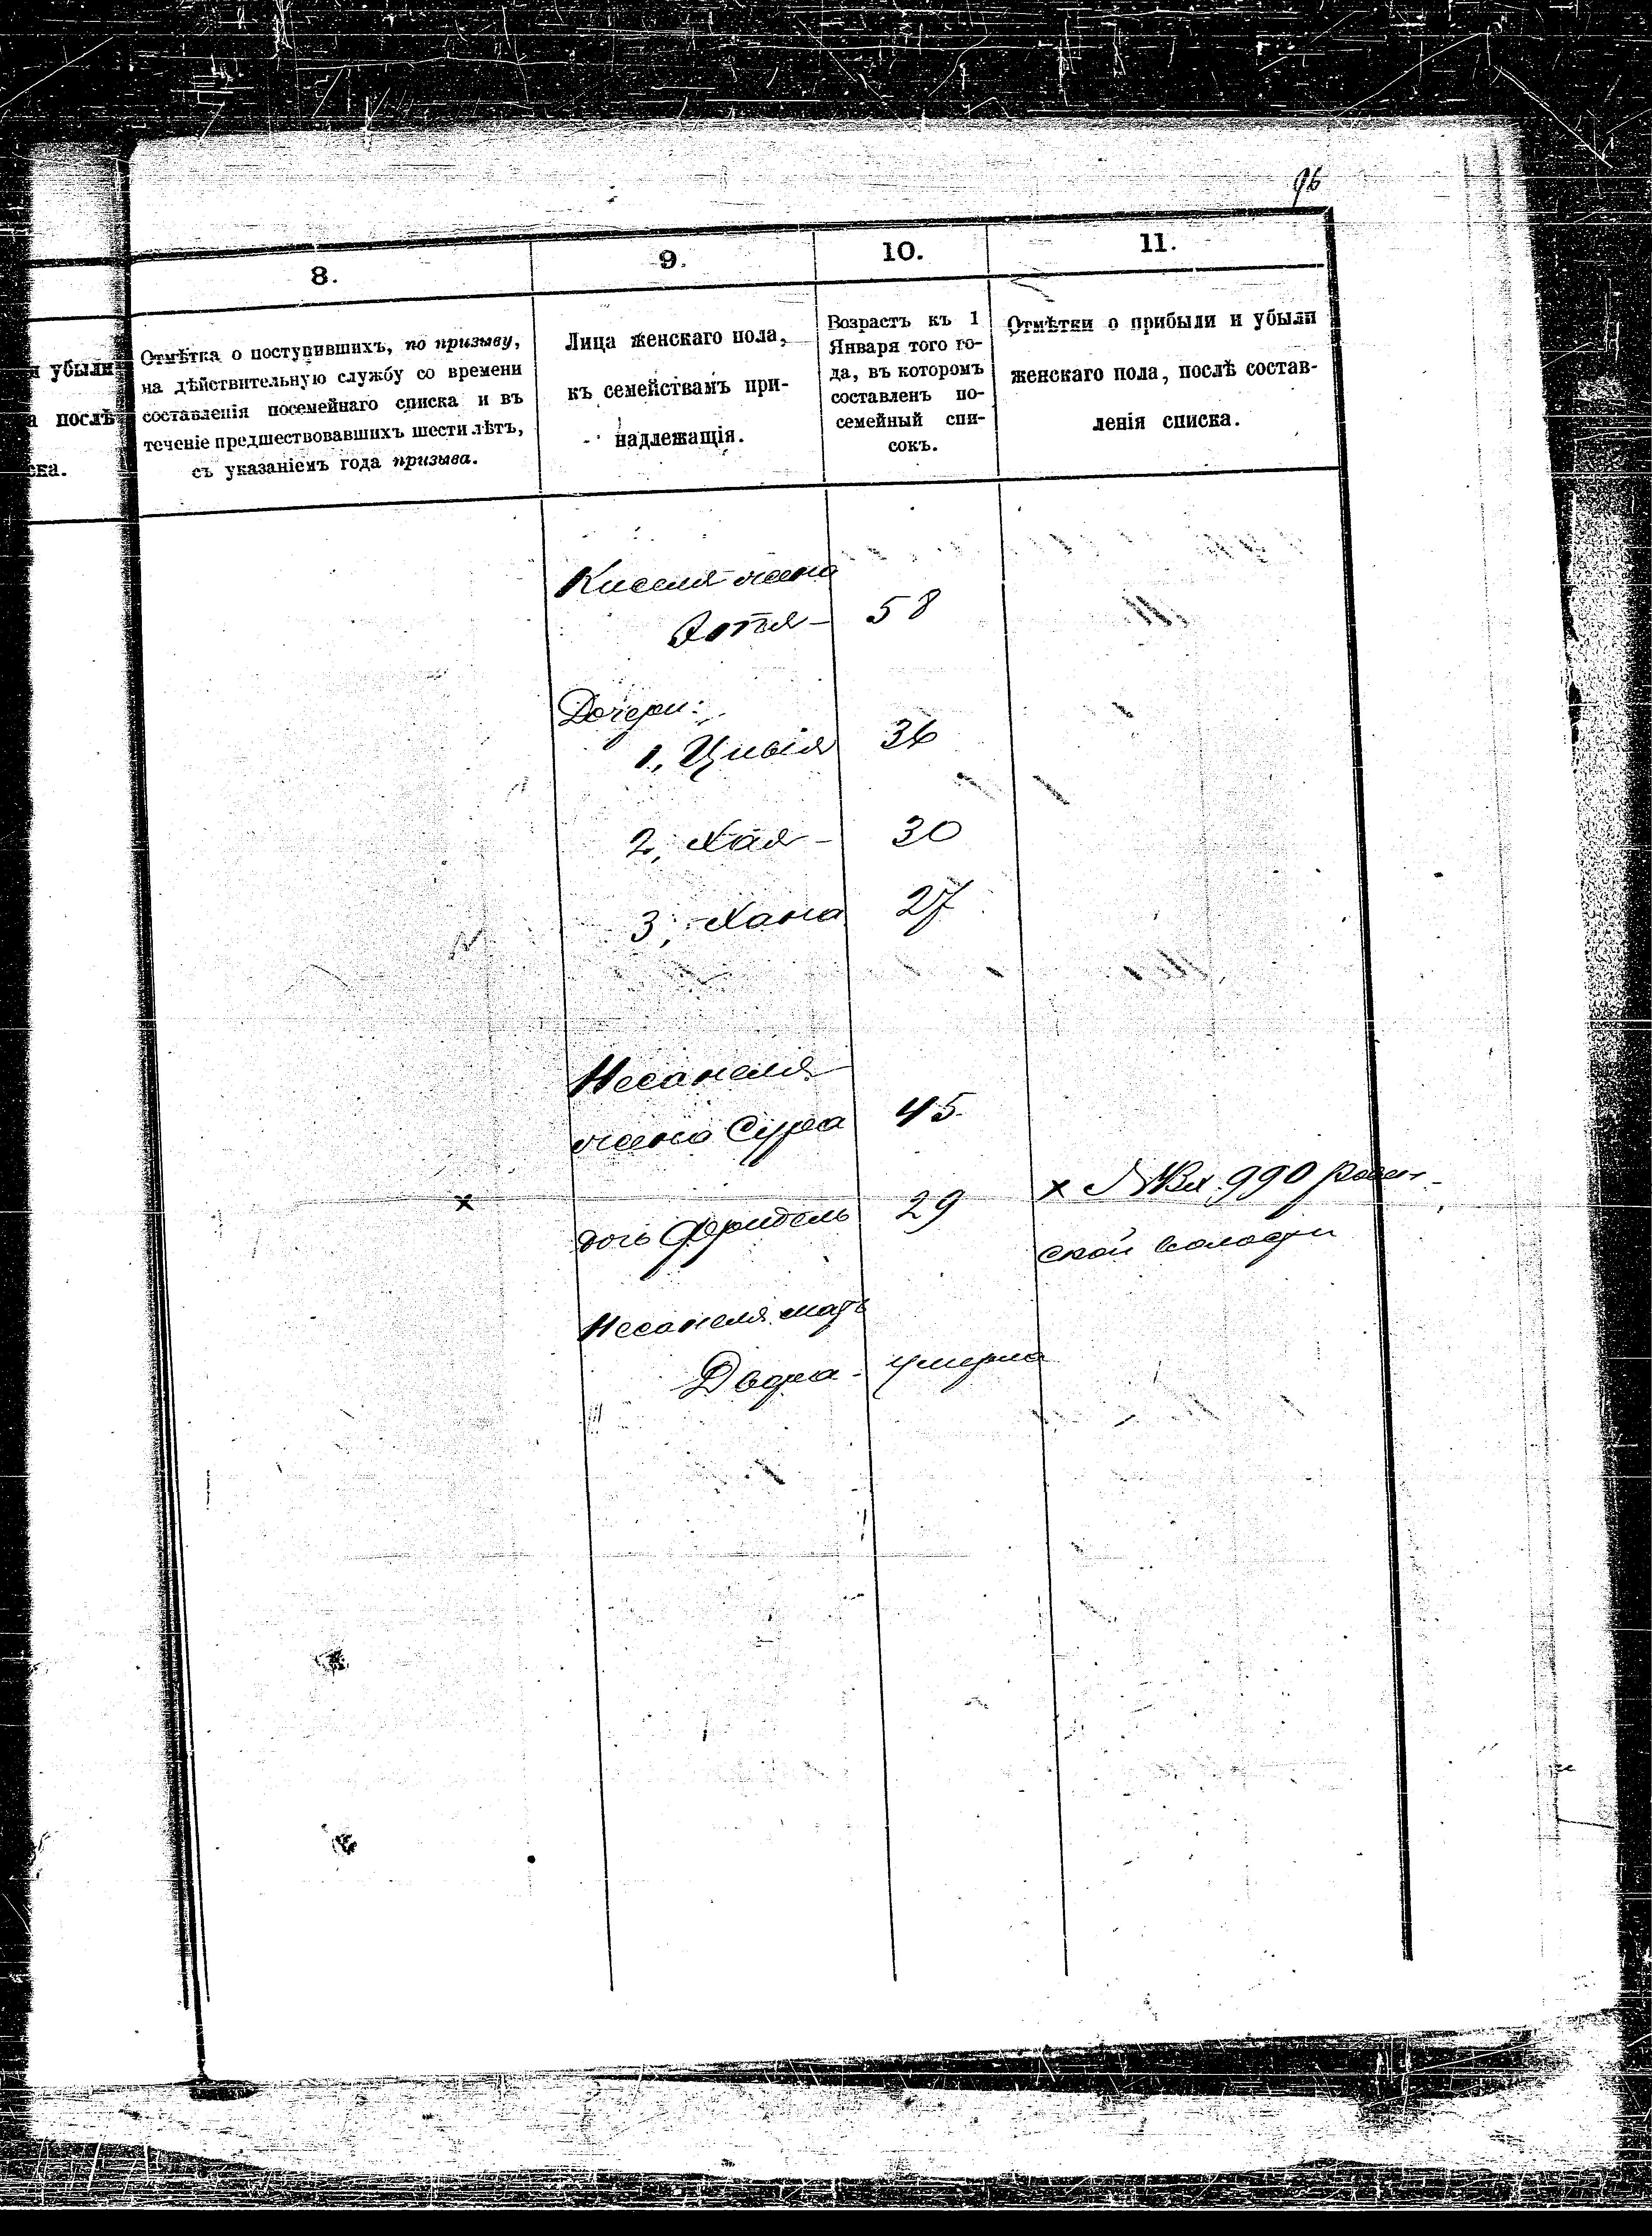 96
8.
9.
10.
11.
и убыли
а послѣ
ска.
Отмѣтка о поступившихъ, по призыву,
на дѣйствительную службу со времени
составленія посемейнаго списка и въ
теченіе предшествовавшихъ шести лѣтъ,
съ указаніемъ года призыва.
Лица женскаго пола,
къ семействамъ при-
надлежащія.
Возрастъ къ 1
Января того го-
да, въ которомъ
составленъ по-
семейный спи-
сокъ.
Отмѣтки о прибыли и убыли
женскаго пола, послѣ состав-
ленія списка.
Киселя жена
58
Дочери:
1, Цивія 36
2, Хая - 30
3, Хана 27
Несанеля
жена Сура 45
х дочь Фридель 29 х 990
ской волости
Несанеля мать
Двера - умерла